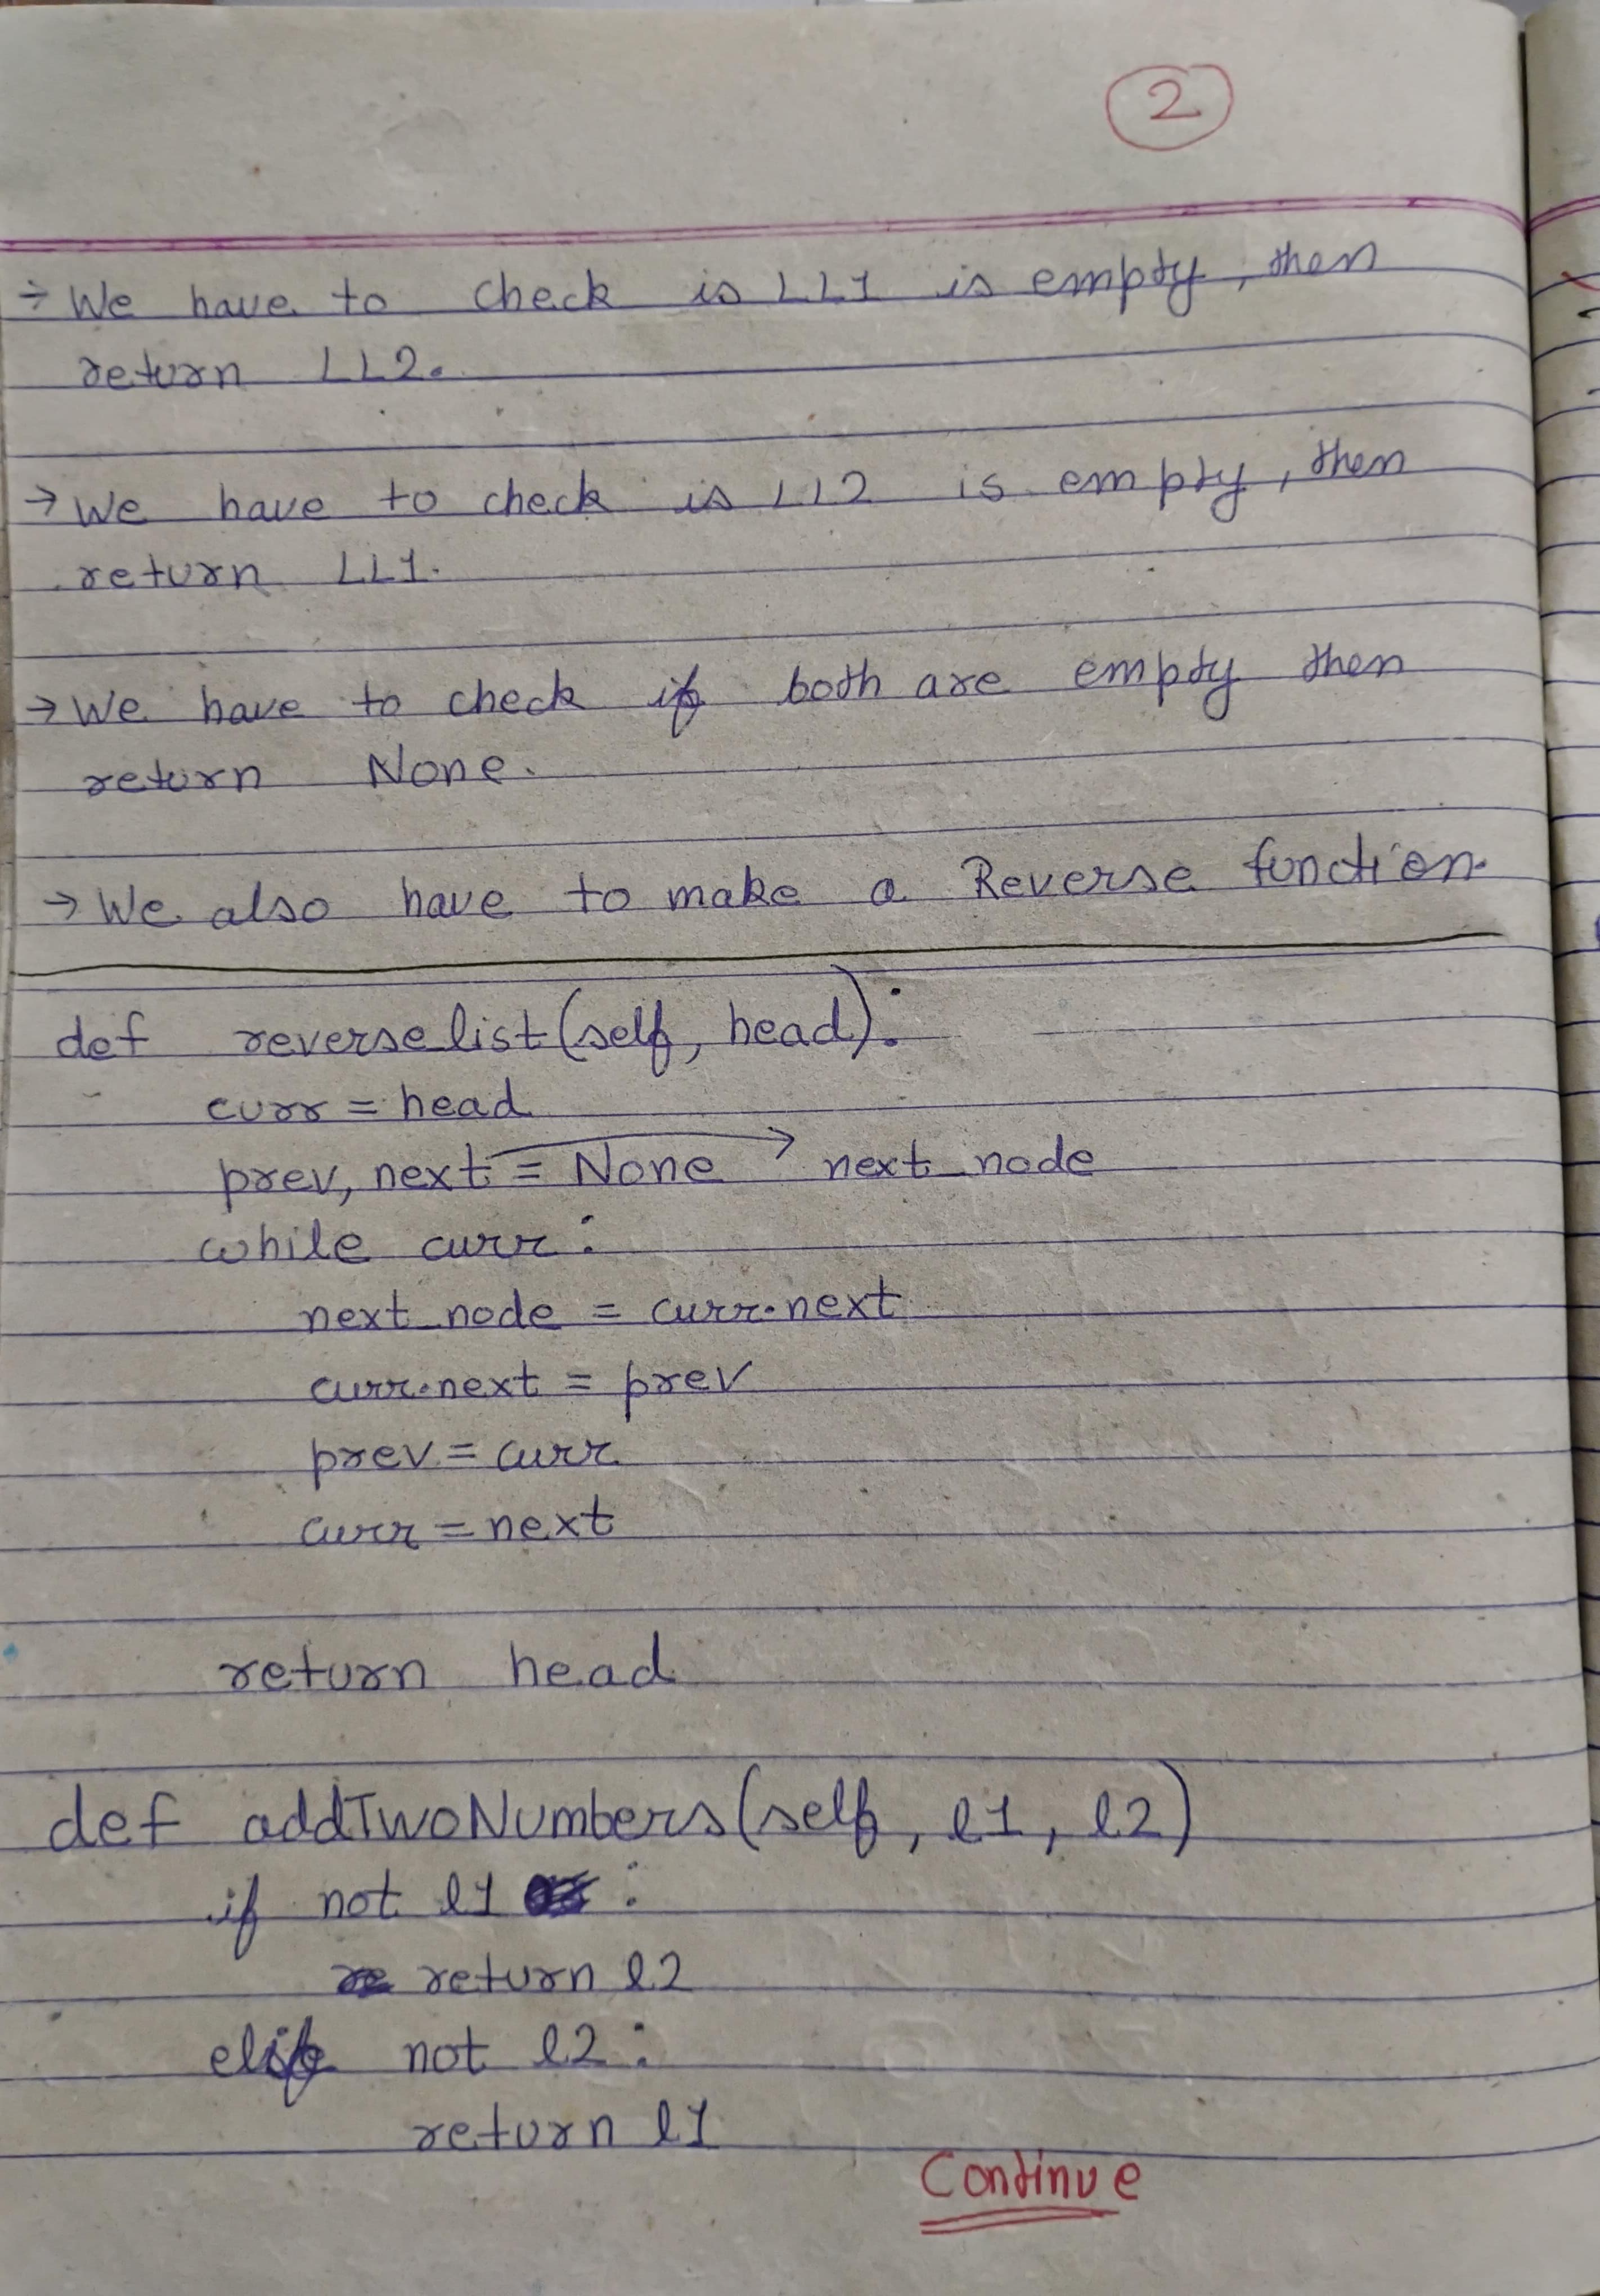 2
→ We have to check is LL1 is empty, then
return LL2.
→ We have to check is LL2 is empty, then
return LL1.
→ We have to check if both are empty then
return None.
→ We also have to make a Reverse function.
def reverse_list(self, head):
curr = head
prev, next = None → next_node
while curr:
next_node = curr.next
curr.next = prev
prev = curr
curr = next
return head
def addTwoNumbers(self, l1, l2)
if not l1 :
return l2
elif not l2:
return l1
Continue